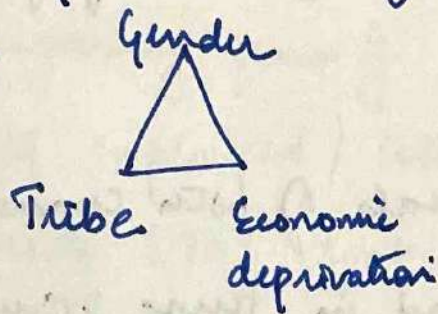 Gender
Tribe Economic
deprivation